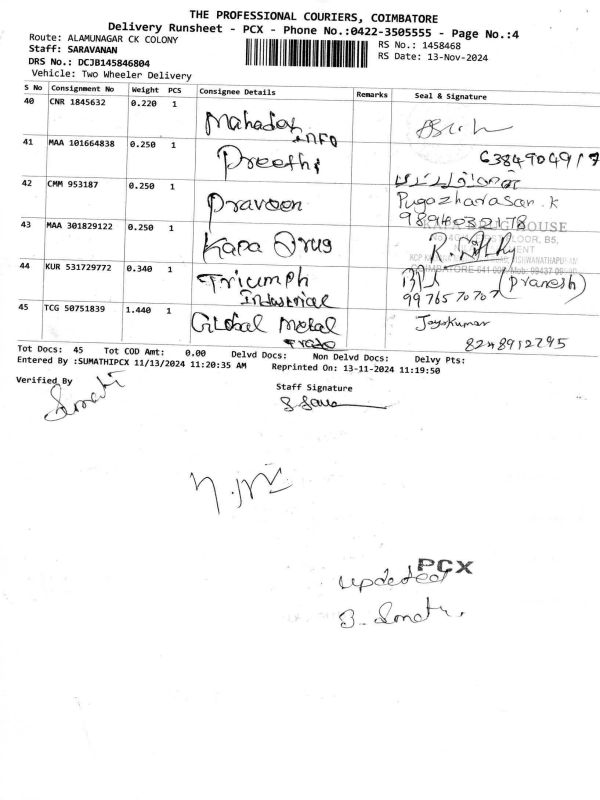 THE PROFESSIONAL COURIERS, COIMBATORE
Delivery Runsheet - PCX - Phone No.:0422-3505555 - Page No.:4
Route: ALAMUNAGAR CK COLONY RS No.: 1458468
Staff: SARAVANAN RS Date: 13-Nov-2024
DRS No.: DCJB145846804
Vehicle: Two Wheeler Delivery
S No Consignment No Weight PCS Consignee Details Remarks Seal & Signature
40 CNR 1845632 0.220 1 Mahadev
INFO
41 MAA 101664838 0.250 1 Preethi
42 CMM 953187 0.250 1 Praveen Pugazharasan.k
43 MAA 301829122 0.250 1 Kapa Drug
44 KUR 531729772 0.340 1 Triumph (Pranesh)
Industrial 9976570707
45 TCG 50751839 1.440 1 Global Metal Jayakumar
Trade 8248912295
Tot Docs: 45 Tot COD Amt: 0.00 Delvd Docs: Non Delvd Docs: Delvy Pts:
Entered By :SUMATHIPCX 11/13/2024 11:20:35 AM Reprinted On: 13-11-2024 11:19:50
Verified By Staff Signature
PCX
updated